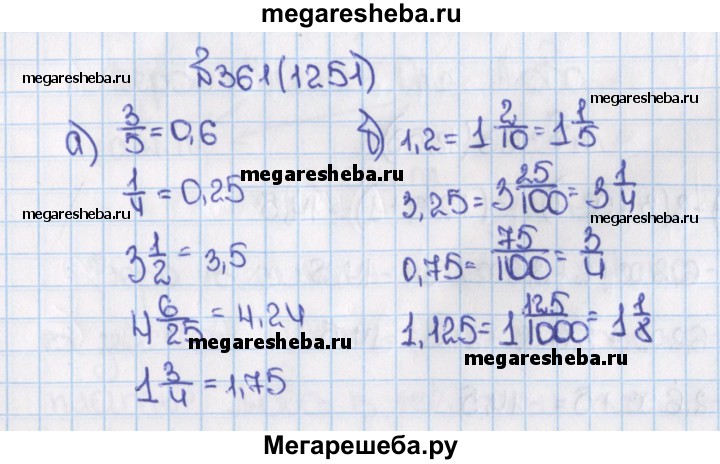 megaresheba.ru
№361(1251)
megaresheba.ru
megaresheba.ru
а) 3/5 = 0,6
1/4 = 0,25
3 1/2 = 3,5
4 6/25 = 4,24
1 3/4 = 1,75
megaresheba.ru
megaresheba.ru
megaresheba.ru
б) 1,2 = 1 2/10 = 1 1/5
3,25 = 3 25/100 = 3 1/4
0,75 = 75/100 = 3/4
1,125 = 1 125/1000 = 1 1/8
megaresheba.ru
megaresheba.ru
megaresheba.ru
Мегарешеба.ру